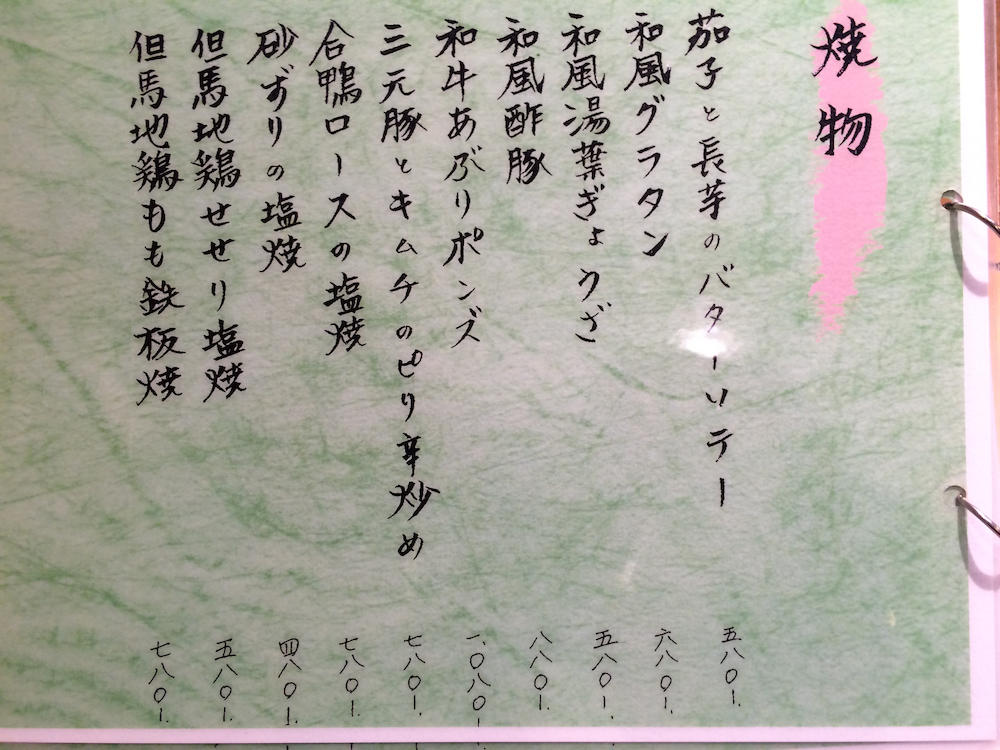 焼物
茄子と長芋のバターソテー 五八〇.
和風グラタン 六八〇.
和風湯葉ぎょうざ 五八〇.
和風酢豚 八八〇.
和牛あぶりポンズ 一、〇八〇.
三元豚とキムチのピリ辛炒め 七八〇.
合鴨ロースの塩焼 七八〇.
砂ずりの塩焼 四八〇.
但馬地鶏せせり塩焼 五八〇.
但馬地鶏もも鉄板焼 七八〇.